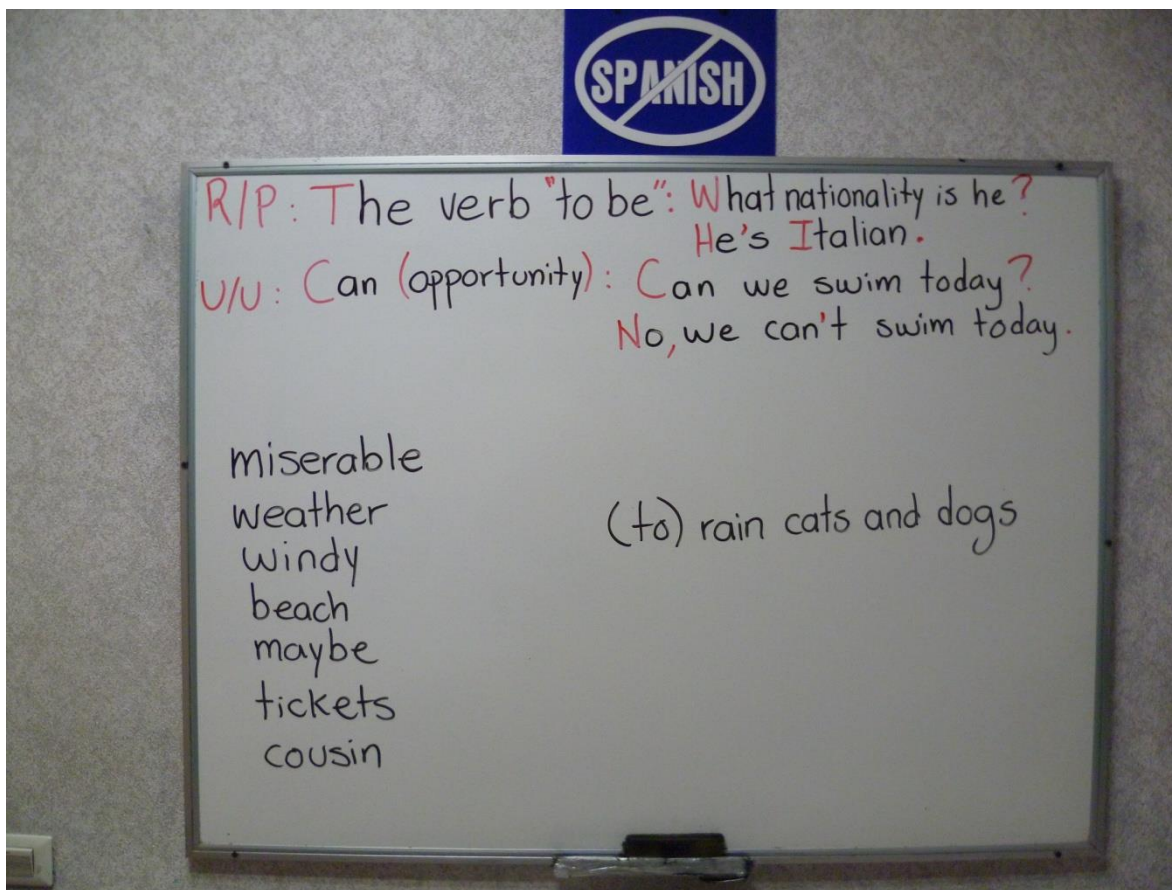 SPANISH
R/P: The verb "to be": What nationality is he?
He's Italian.
U/U: Can (opportunity): Can we swim today?
No, we can't swim today.
miserable
weather
windy
beach
maybe
tickets
cousin
(to) rain cats and dogs